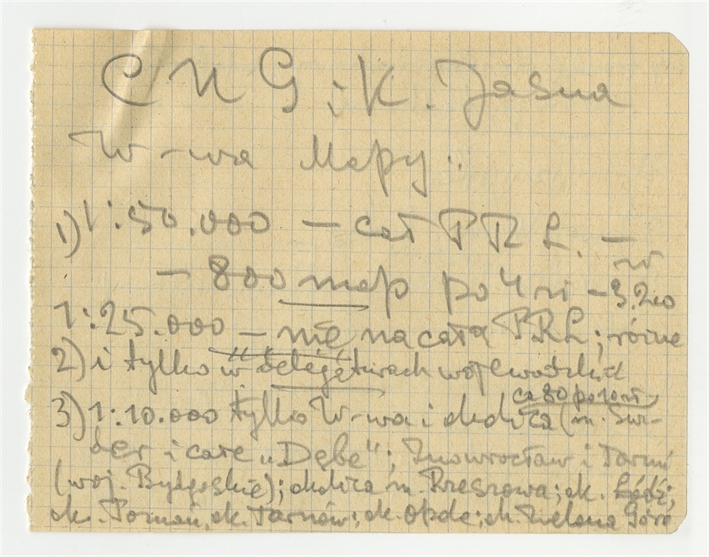 CUG i K. Jasna
W-wa Mapy:
1) 1:50.000 – cał PRL. –
– 800 map po 4 zł – 3.200
1:25.000 – nie na całą PRL; różne
2) i tylko w delegaturach wojewódzkich
ca 80 poz.
3) 1:10.000 tylko W-wa i okolica (m. Świ-
der i całe „Dębe"; Inowrocław i Toruń
(woj. Bydgoskie); okolica m. Rzeszowa; ok. Łódź;
ok. Poznań, ok. Tarnów; ok. Opole; ok. Zielona Góra